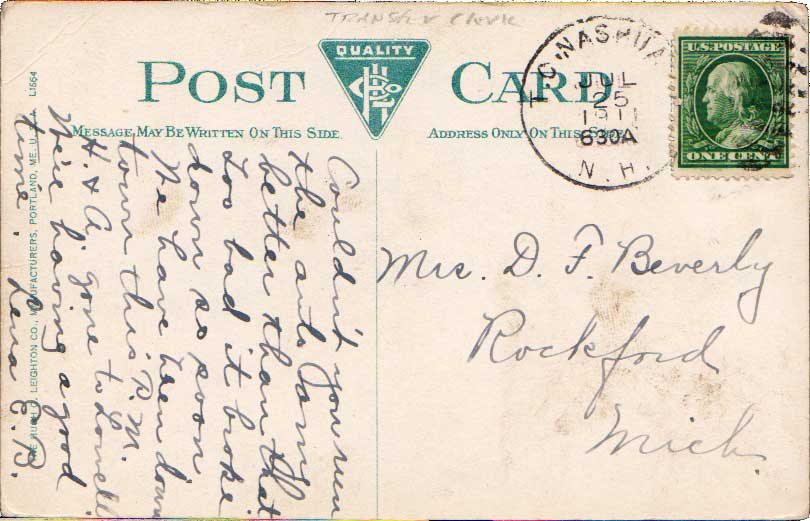 TRANSFER CLERK
QUALITY
POST CARD
MESSAGE MAY BE WRITTEN ON THIS SIDE.
ADDRESS ONLY ON THIS
NASHUA
JUL
25
1911
630A
N.H.
U.S. POSTAGE
ONE CENT
Couldn't you run
the auto
better than that
Too bad it broke
down so soon
We have been down
town this P.M.
H. & A. gone to Lowell
We're having a good
time.
Lena E. B.
Mrs. D. F. Beverly
Rockford
Mich
THE HUGH C. LEIGHTON CO., MANUFACTURERS, PORTLAND, ME. U.S.A. L1564